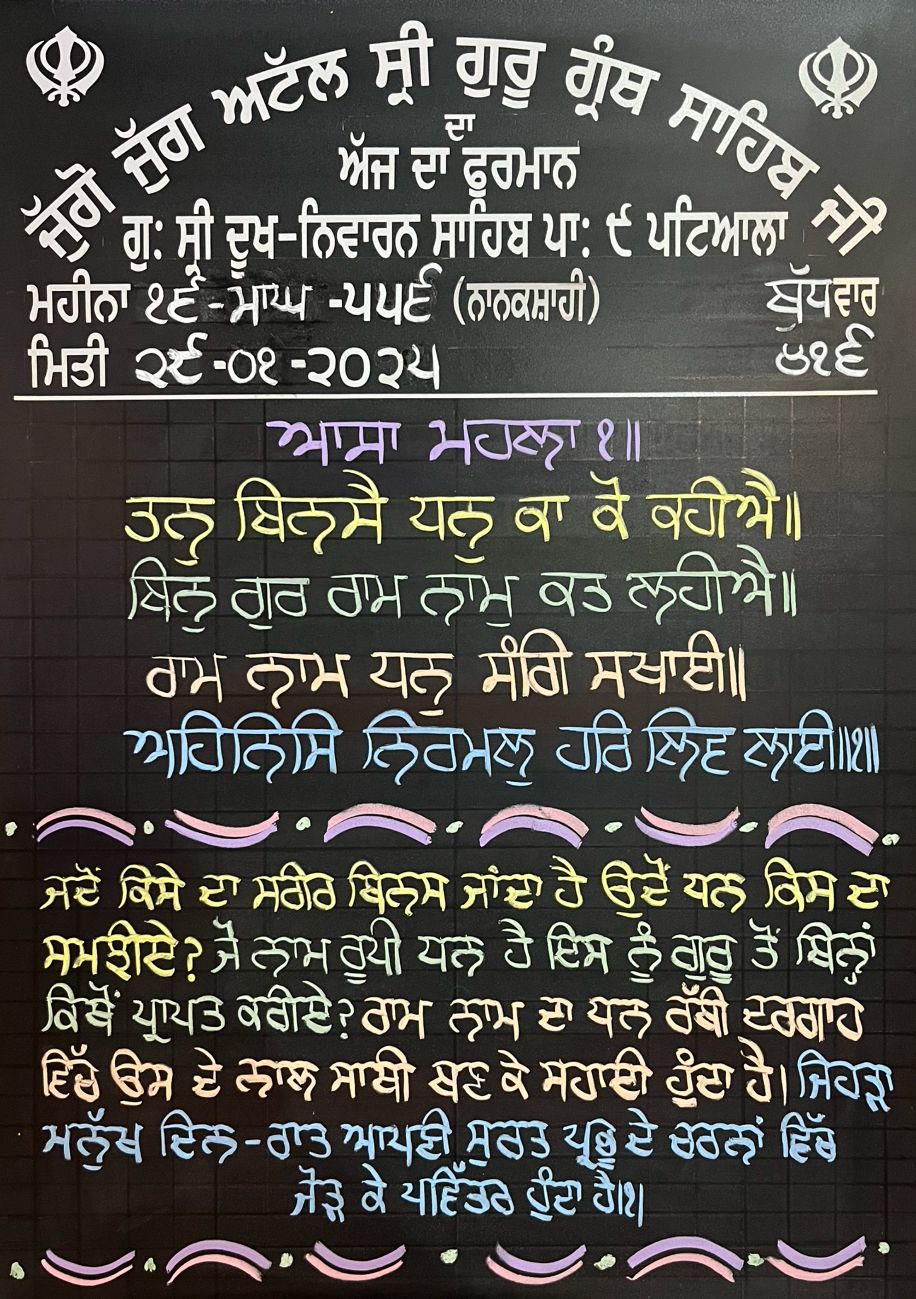 ਜੁੱਗੋ ਜੁੱਗ ਅਟੱਲ ਸ੍ਰੀ ਗੁਰੂ ਗ੍ਰੰਥ ਸਾਹਿਬ ਜੀ
ਦਾ
ਅੱਜ ਦਾ ਫੁਰਮਾਨ
ਗੁ: ਸ੍ਰੀ ਦੂਖ-ਨਿਵਾਰਨ ਸਾਹਿਬ ਪਾ: ੯ ਪਟਿਆਲਾ
ਮਹੀਨਾ ੧੬-ਮਾਘ -੫੫੬ (ਨਾਨਕਸ਼ਾਹੀ) ਬੁੱਧਵਾਰ
ਮਿਤੀ ੨੯-੦੧-੨੦੨੫ ੪੧੬
ਆਸਾ ਮਹਲਾ ੧॥
ਤਨੁ ਬਿਨਸੈ ਧਨੁ ਕਾ ਕੋ ਕਹੀਐ॥
ਬਿਨੁ ਗੁਰ ਰਾਮ ਨਾਮੁ ਕਤ ਲਹੀਐ॥
ਰਾਮ ਨਾਮ ਧਨੁ ਸੰਗਿ ਸਖਾਈ॥
ਅਹਿਨਿਸਿ ਨਿਰਮਲੁ ਹਰਿ ਲਿਵ ਲਾਈ॥੧॥
ਜਦੋਂ ਕਿਸੇ ਦਾ ਸਰੀਰ ਬਿਨਸ ਜਾਂਦਾ ਹੈ ਉਦੋਂ ਧਨ ਕਿਸ ਦਾ
ਸਮਝੀਏ? ਜੋ ਨਾਮ ਰੂਪੀ ਧਨ ਹੈ ਇਸ ਨੂੰ ਗੁਰੂ ਤੋਂ ਬਿਨਾਂ
ਕਿਥੋਂ ਪ੍ਰਾਪਤ ਕਰੀਏ? ਰਾਮ ਨਾਮ ਦਾ ਧਨ ਰੱਬੀ ਦਰਗਾਹ
ਵਿੱਚ ਉਸ ਦੇ ਨਾਲ ਸਾਥੀ ਬਣ ਕੇ ਸਹਾਈ ਹੁੰਦਾ ਹੈ। ਜਿਹੜਾ
ਮਨੁੱਖ ਦਿਨ-ਰਾਤ ਆਪਣੀ ਸੁਰਤ ਪ੍ਰਭੂ ਦੇ ਚਰਨਾਂ ਵਿੱਚ
ਜੋੜ ਕੇ ਪਵਿੱਤਰ ਹੁੰਦਾ ਹੈ।੧।